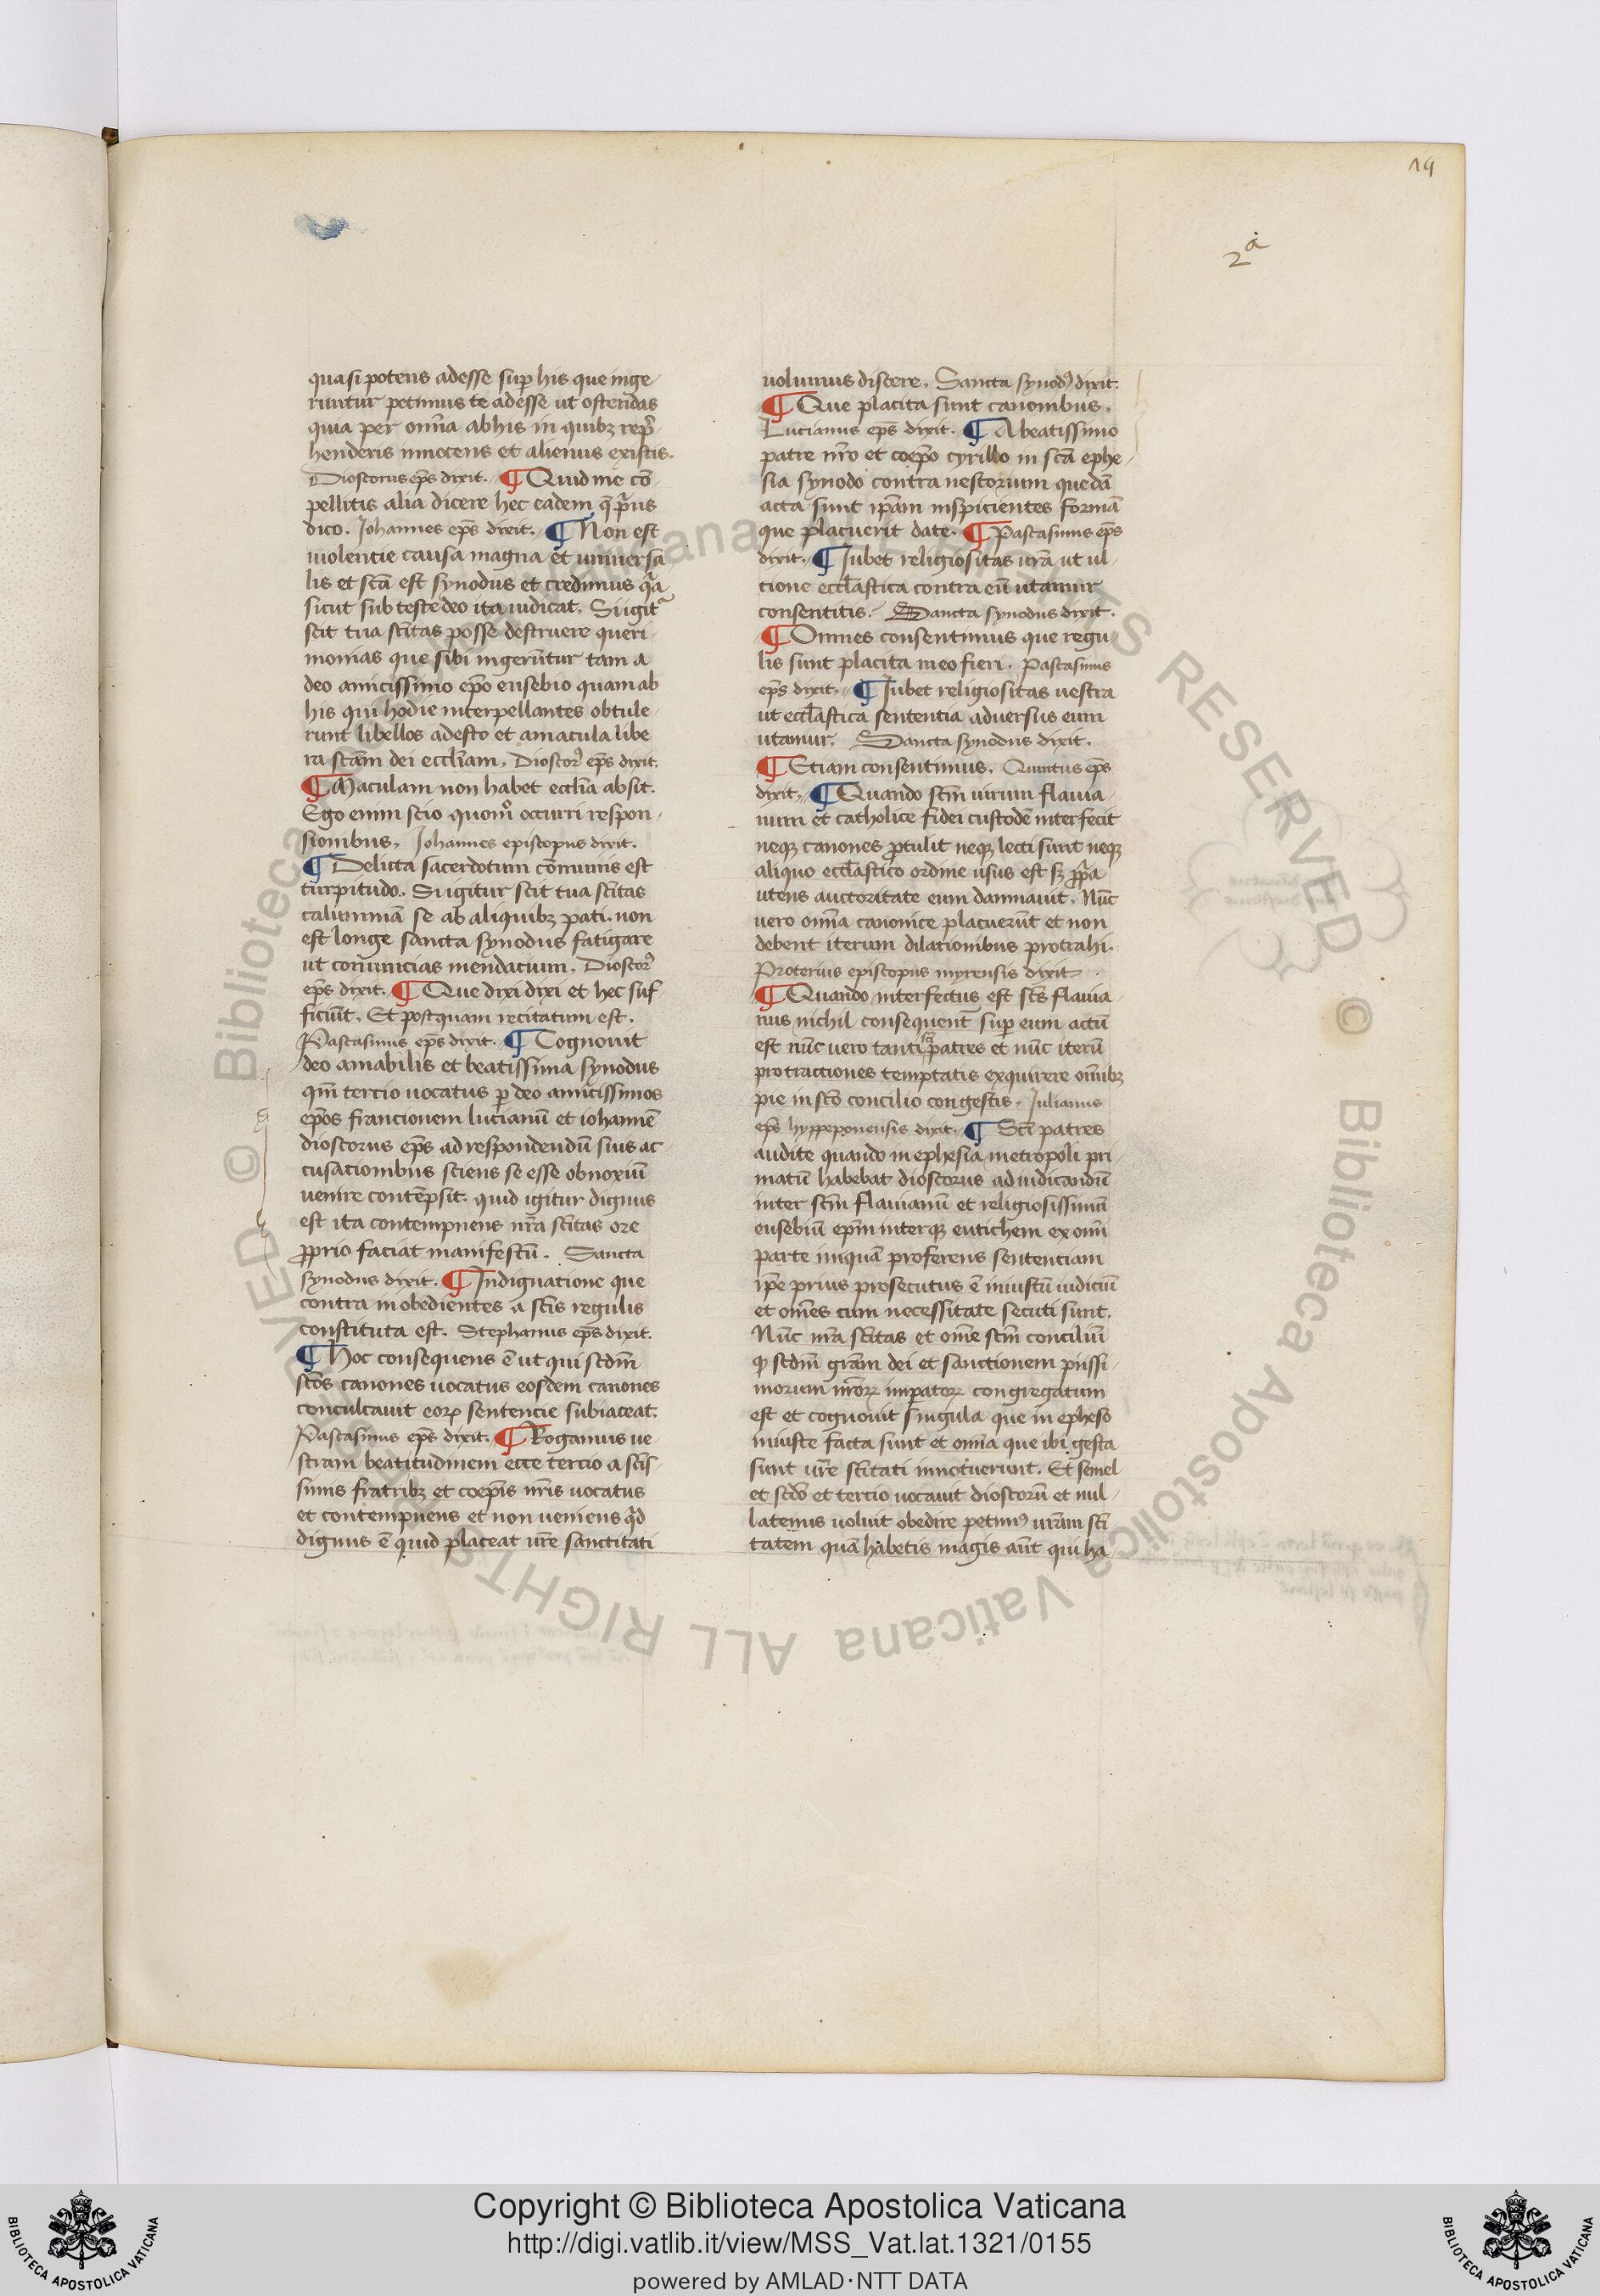 14
2a
quasi potens adesse sup his que inge
runtur petimus te adesse ut ostendas
quia per omīa ab his in quibꝫ rep̄
henderis innocens et alienus existis.
Dioscorus ep̄s dixit. ¶ Quid me cō
pellitis alia dicere hec eadem q̄ p̄us
dico. Johannes ep̄s dixit. ¶ Non est
uiolentie causa magna et uniuersa
lis et scā est synodus et credimus qa
sicut sub teste deo ita iudicat. Si igit
scit tua sc̄itas posse destruere queri
monias que sibi ingerūtur tam a
deo amicissimo ep̄o eusebio quam ab
his qui hodie interpellantes obtule
runt libellos adesto et a macula libe
ra scām dei eccl̄iam. Dioscor' ep̄s dixit.
¶ Maculam non habet eccl̄ia absit.
Ego enim scio quom̊ occurri respon
sionibus. Johannes episcopus dixit.
¶ Delicta sacerdotum cōmunis est
turpitudo. Si igitur scit tua sc̄itas
calumniā se ab aliquibꝫ pati. non
est longe sancta synodus fatigare
ut conuincias mendacium. Dioscor'
ep̄s dixit. ¶ Que dixi dixi et hec suf
ficiūt. Et postquam recitatum est.
Pascasinus ep̄s dixit. ¶ Cognouit
deo amabilis et beatissima synodus
qm̄ tercio uocatus ꝑ deo amicissimos
ep̄os francionem lucianū et iohannē
dioscorus ep̄s ad respondendū suis ac
cusationibus sciens se esse obnoxiū
uenire contēpsit. quid igitur dignus
est ita contempnens ur̄a sc̄itas ore
ꝓprio faciat manifestū. Sancta
synodus dixit. ¶ Indignatione que
contra inobedientes a scīs regulis
constituta est. Stephanus ep̄s dixit.
¶ Hoc consequens ē ut qui scdm̄
scōs canones uocatus eosdem canones
conculcauit eorꝝ sentencie subiaceat.
Pascasinus ep̄s dixit. ¶ Rogamus ue
stram beatitudinem ecce tercio a scīs
simis fratribꝫ et coep̄is nr̄is uocatus
et contempnens et non ueniens qd
dignus ē quid placeat ur̄e sanctitati
uolumus discere. Sancta synod' dixit.
¶ Que placita sunt canonibus.
Lucianus ep̄s dixit. ¶ A beatissimo
patre nr̄o et coep̄o cyrillo in scā ephe
sia synodo contra nestorium quedā
acta sunt ip̄am inspicientes formā
que placuerit date. ¶ Pascasinus ep̄s
dixit. ¶ Jubet religiositas ur̄a ut ul
tione eccl̄astica contra eū utamur
consentitis. Sancta synodus dixit.
¶ Omnes consentimus que regu
lis sunt placita in eo fieri. Pascasinus
ep̄s dixit. ¶ Jubet religiositas uestra
ut eccl̄astica sententia aduersus eum
utamur. Sancta synodus dixit.
¶ Etiam consentimus. Quintus ep̄s
dixit. ¶ Quando scm̄ uirum flauia
num et catholice fidei custodē interfecit
neqꝫ canones ꝓtulit neqꝫ lecti sunt neqꝫ
aliquo eccl̄astico ordine usus est sꝫ ꝓpa
utens auctoritate eum damnauit. Nūc
uero omīa canonice placuerūt et non
debent iterum dilationibus protrahi.
Proterius episcopus myrensis dixit
¶ Quando interfectus est scs̄ flauia
nus nichil consequent̄ sup eum actū
est nūc uero tanti patres et nūc iterū
protractiones temptatis exquirere om̄ibꝫ
pie in scō concilio congestis. Julianus
ep̄s hyppeponensis dixit. ¶ Scī patres
audite quando in ephesia metropoli pri
matū habebat dioscorus ad iudicandū
inter scm̄ flauianū et religiosissimū
eusebiū ep̄m interqꝫ eutichem ex om̄i
parte iniquā proferens sentenciam
ip̄e prius prosecutus ē iniustū iudiciū
et om̄es cum necessitate secuti sunt.
Nūc ur̄a sc̄itas et om̄e scm̄ conciliū
qd scdm̄ grām dei et sanctionem piissi
morum nr̄orꝝ imperatorꝝ congregatum
est et cognouit singula que in epheso
iniuste facta sunt et omīa que ibi gesta
sunt ur̄e sc̄itati innotuerunt. Et semel
et scdō et tercio uocauit dioscorū et nul
latenus uoluit obedire petim' ur̄am scī
tatem quā habetis magis aūt qui ha
Copyright © Biblioteca Apostolica Vaticana
http://digi.vatlib.it/view/MSS_Vat.lat.1321/0155
powered by AMLAD·NTT DATA
BIBLIOTECA APOSTOLICA VATICANA
BIBLIOTECA APOSTOLICA VATICANA
© Biblioteca Apostolica Vaticana ALL RIGHTS RESERVED